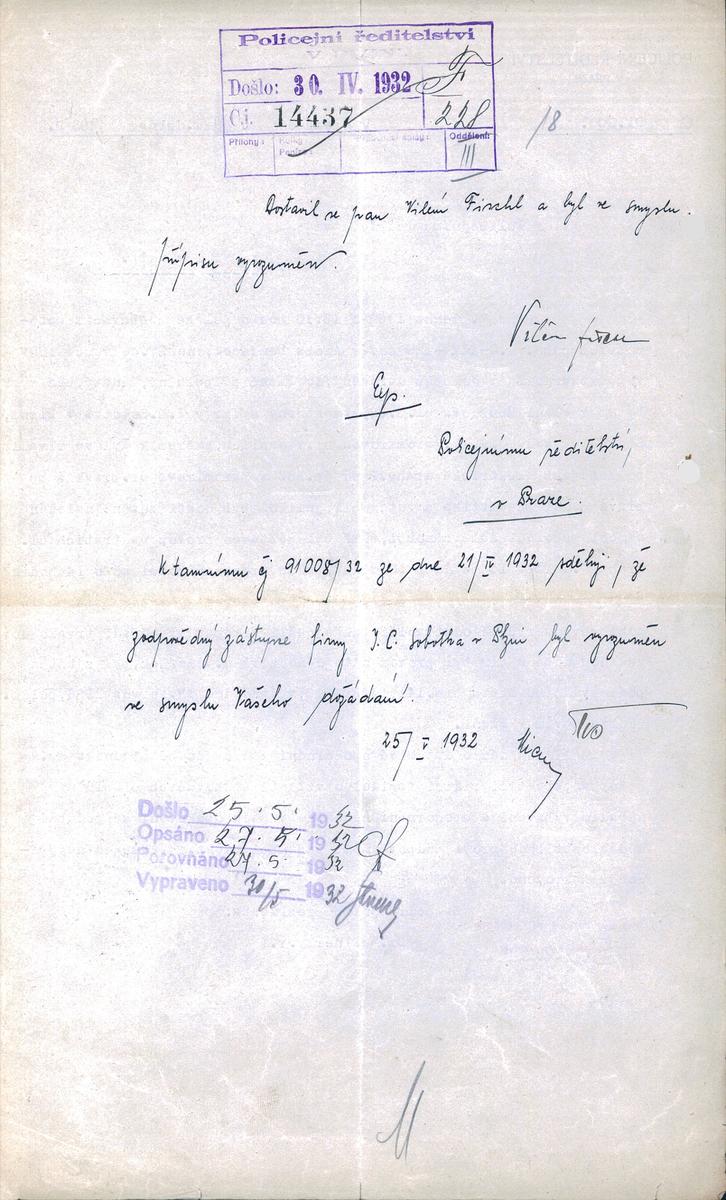 Policejní ředitelství
Došlo: 30. IV. 1932
Čj. 14437
228
Přílohy:
Oddělení:
III
/8
Dostavil se pan Vilém Fischl a byl ve smyslu
přípisu vyrozuměn.
Vilém
Exp.
Policejnímu ředitelství,
v Praze.
K tamnímu čj 91008/32 ze dne 21/IV 1932 sděluji, že
zodpovědný zástupce firmy J. C. Sobotka v Plzni byl vyrozuměn
ve smyslu Vašeho dožádání.
25/V 1932
Došlo 25. 5. 1932
Opsáno 27. 5. 1932
Porovnáno 27. 5. 1932
Vypraveno 30/5 1932